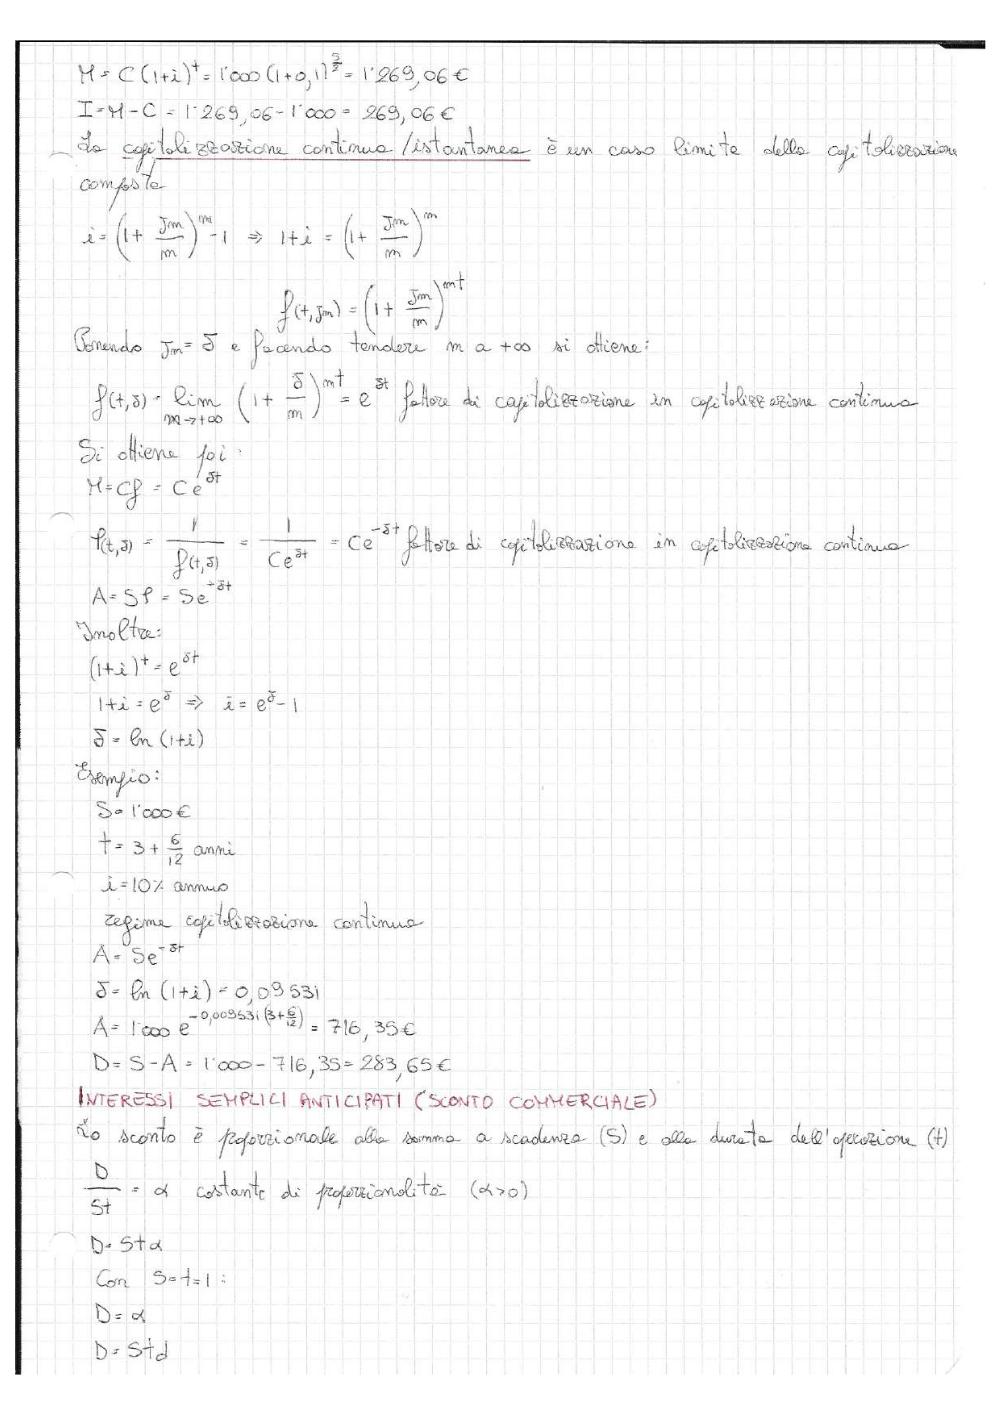 M = C(1+i)^t = 1'000(1+0,1)^{5/2} = 1'269,06 €
I = M - C = 1'269,06 - 1'000 = 269,06 €
La capitalizzazione continua/istantanea è un caso limite della capitalizzazione
composta
i = (1 + Jm/m)^m - 1 ⇒ 1+i = (1 + Jm/m)^m
f(t,Jm) = (1 + Jm/m)^{mt}
Ponendo Jm = δ e facendo tendere m a +∞ si ottiene:
f(t,δ) = lim_{m→+∞} (1 + δ/m)^{mt} = e^{δt} fattore di capitalizzazione in capitalizzazione continua
Si ottiene poi:
M = Cf = Ce^{δt}
φ(t,δ) = 1/f(t,δ) = 1/Ce^{δt} = Ce^{-δt} fattore di capitalizzazione in capitalizzazione continua
A = Sφ = Se^{-δt}
Inoltre:
(1+i)^t = e^{δt}
1+i = e^δ ⇒ i = e^δ - 1
δ = ln(1+i)
Esempio:
S = 1'000 €
t = 3 + 6/12 anni
i = 10% annuo
regime capitalizzazione continua
A = Se^{-δt}
δ = ln(1+i) = 0,09531
A = 1'000 e^{-0,009531(3+6/12)} = 716,35 €
D = S - A = 1'000 - 716,35 = 283,65 €
INTERESSI SEMPLICI ANTICIPATI (SCONTO COMMERCIALE)
Lo sconto è proporzionale alla somma a scadenza (S) e alla durata dell'operazione (t)
D/St = α costante di proporzionalità (α>0)
D = Stα
Con S = t = 1:
D = α
D = Std